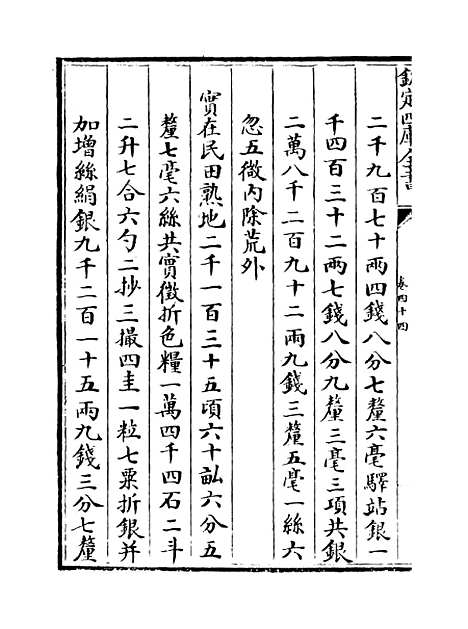 欽定四庫全書
卷四十四
二千九百七十兩四錢八分七釐六毫驛站銀一
千四百三十二兩七錢八分九釐三毫三項共銀
二萬八千二百九十二兩九錢三釐五毫一絲六
忽五微內除荒外
實在民田熟地二千一百三十五頃六十畝六分五
釐七毫六絲共實徵折色糧一萬四千四石二斗
二升七合六勺二抄三撮四圭一粒七粟折銀并
加增絲絹銀九千二百一十五兩九錢三分七釐